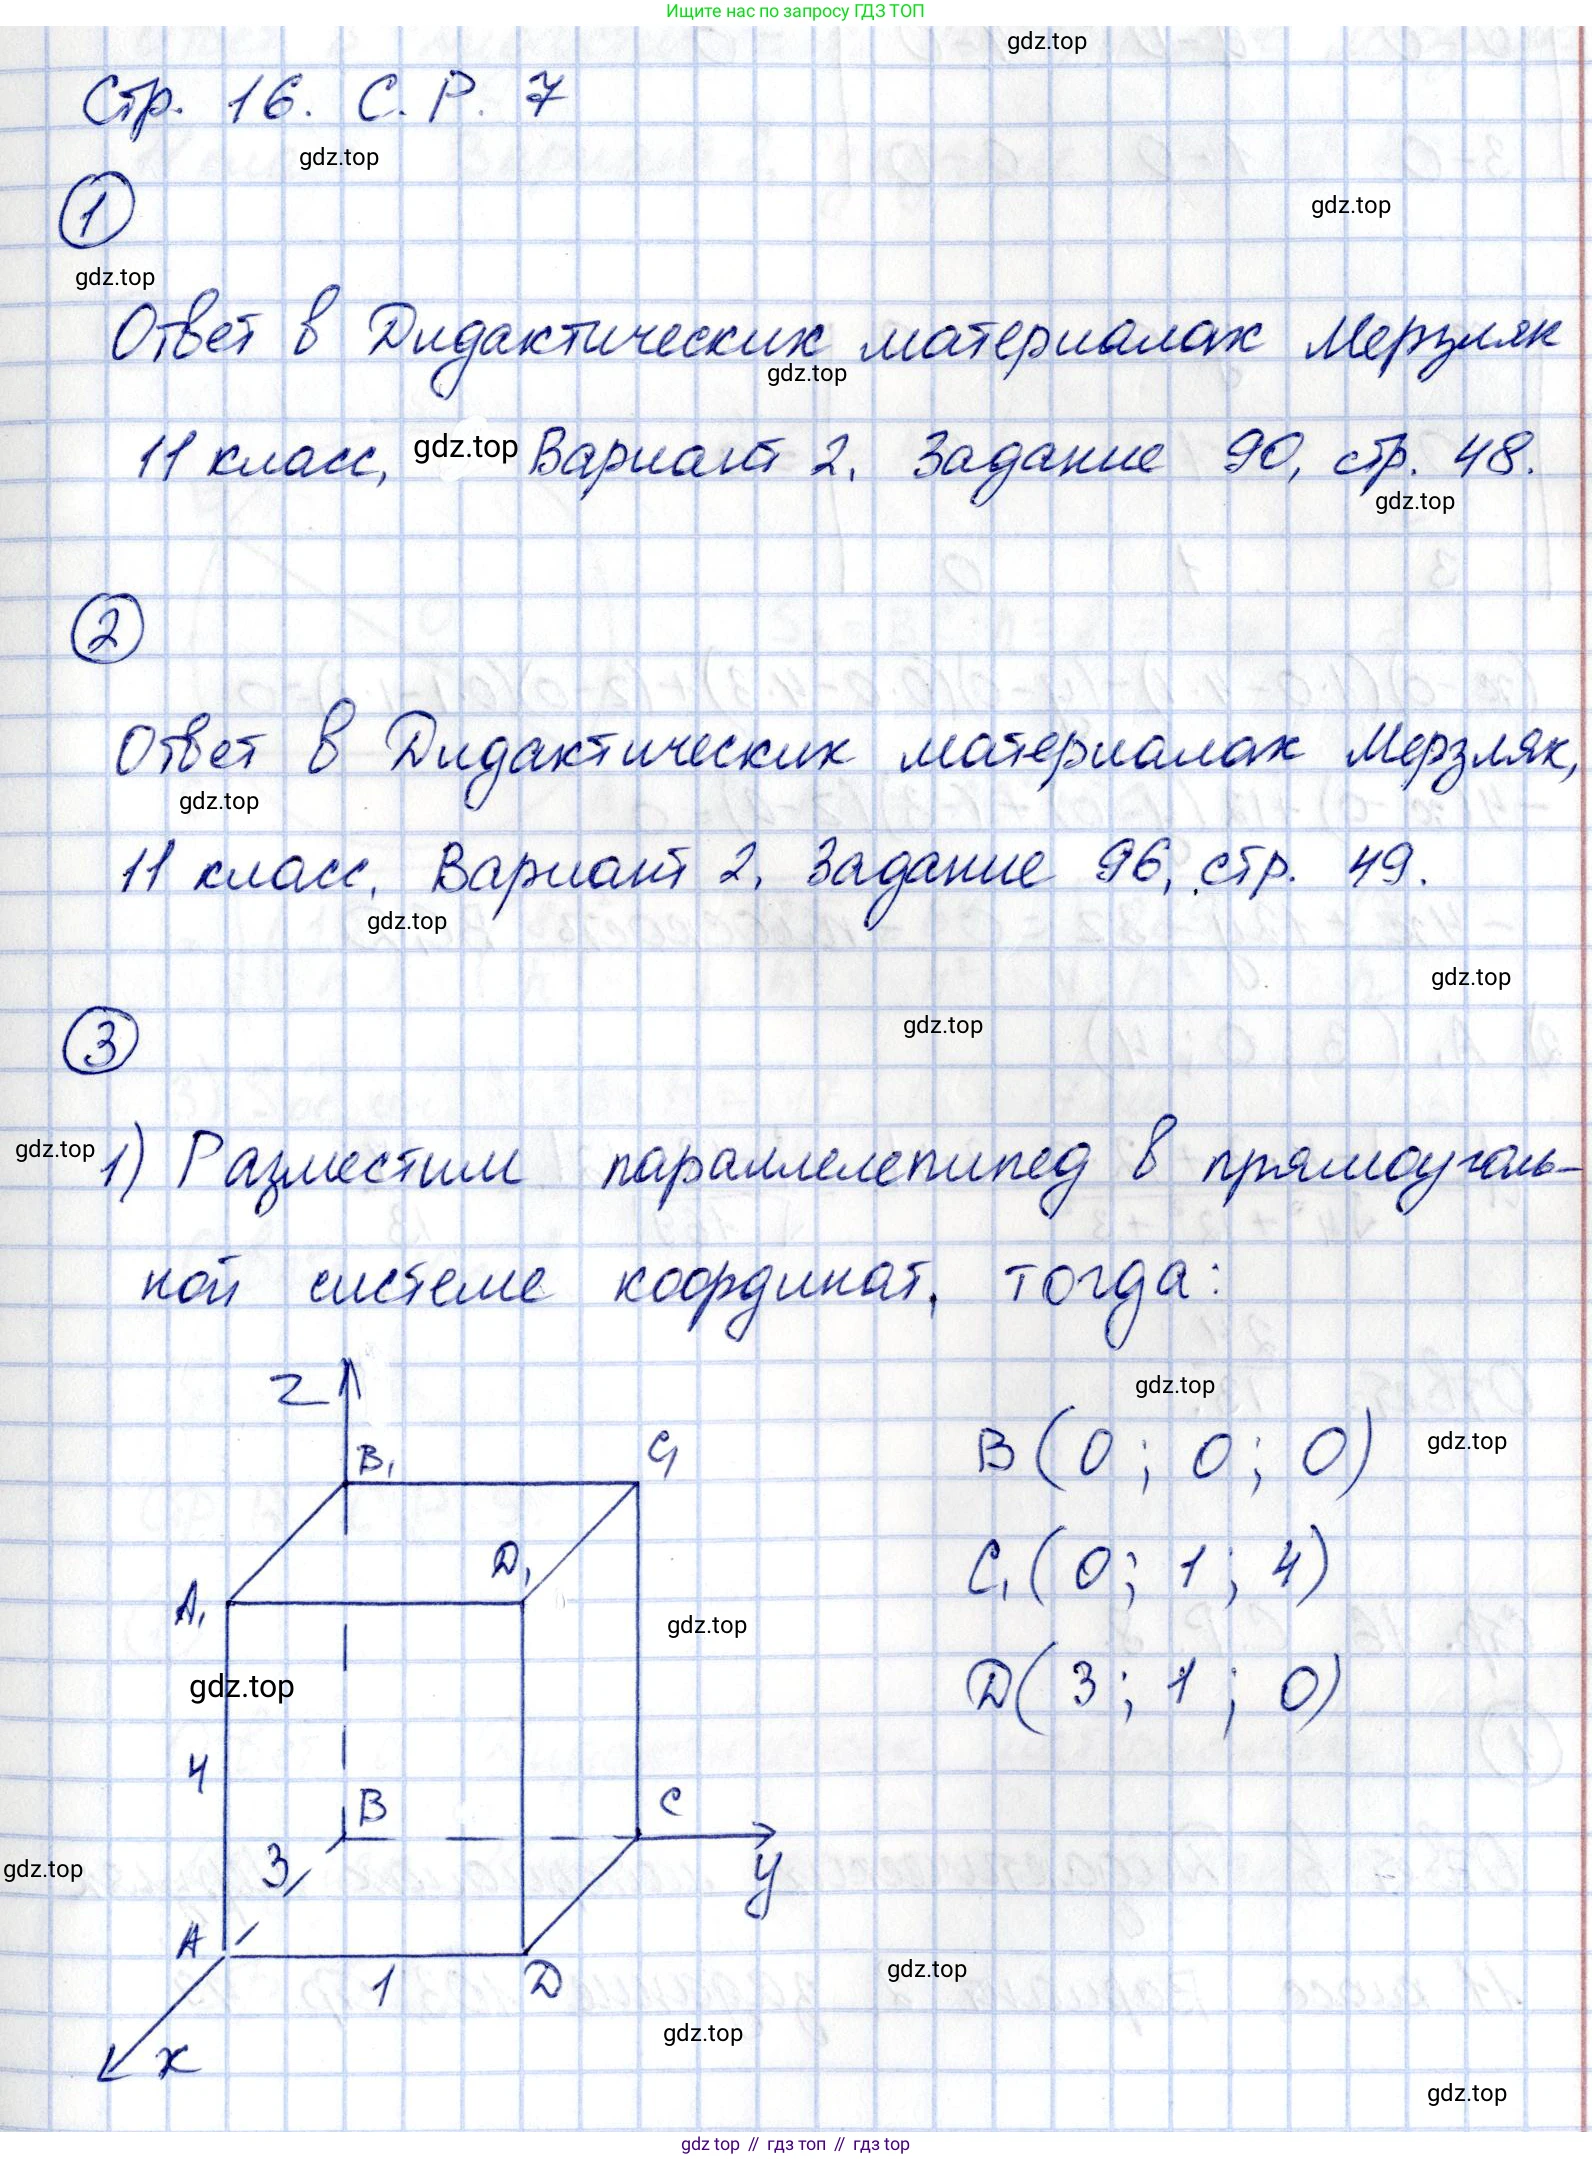 Ищите нас по запросу ГДЗ ТОП
gdz.top
Стр. 16. С. Р. 7
gdz.top
1
gdz.top
gdz.top
Ответ в Дидактических материалах Мерзляк
gdz.top
11 класс, gdz.top Вариант 2, Задание 90, стр. 48.
gdz.top
2
Ответ в Дидактических материалах Мерзляк,
gdz.top
11 класс, Вариант 2, Задание 96, стр. 49.
gdz.top
gdz.top
3
gdz.top
gdz.top 1) Разместим параллелепипед в прямоуголь-
ной системе координат, тогда:
z
gdz.top
B₁ C₁
B (0 ; 0 ; 0) gdz.top
D₁
C₁ (0 ; 1 ; 4)
A₁
gdz.top
gdz.top
D (3 ; 1 ; 0)
4
B C
3
gdz.top
y
A
1 D
gdz.top
x
gdz.top
gdz.top
gdz top // гдз топ // gdz top